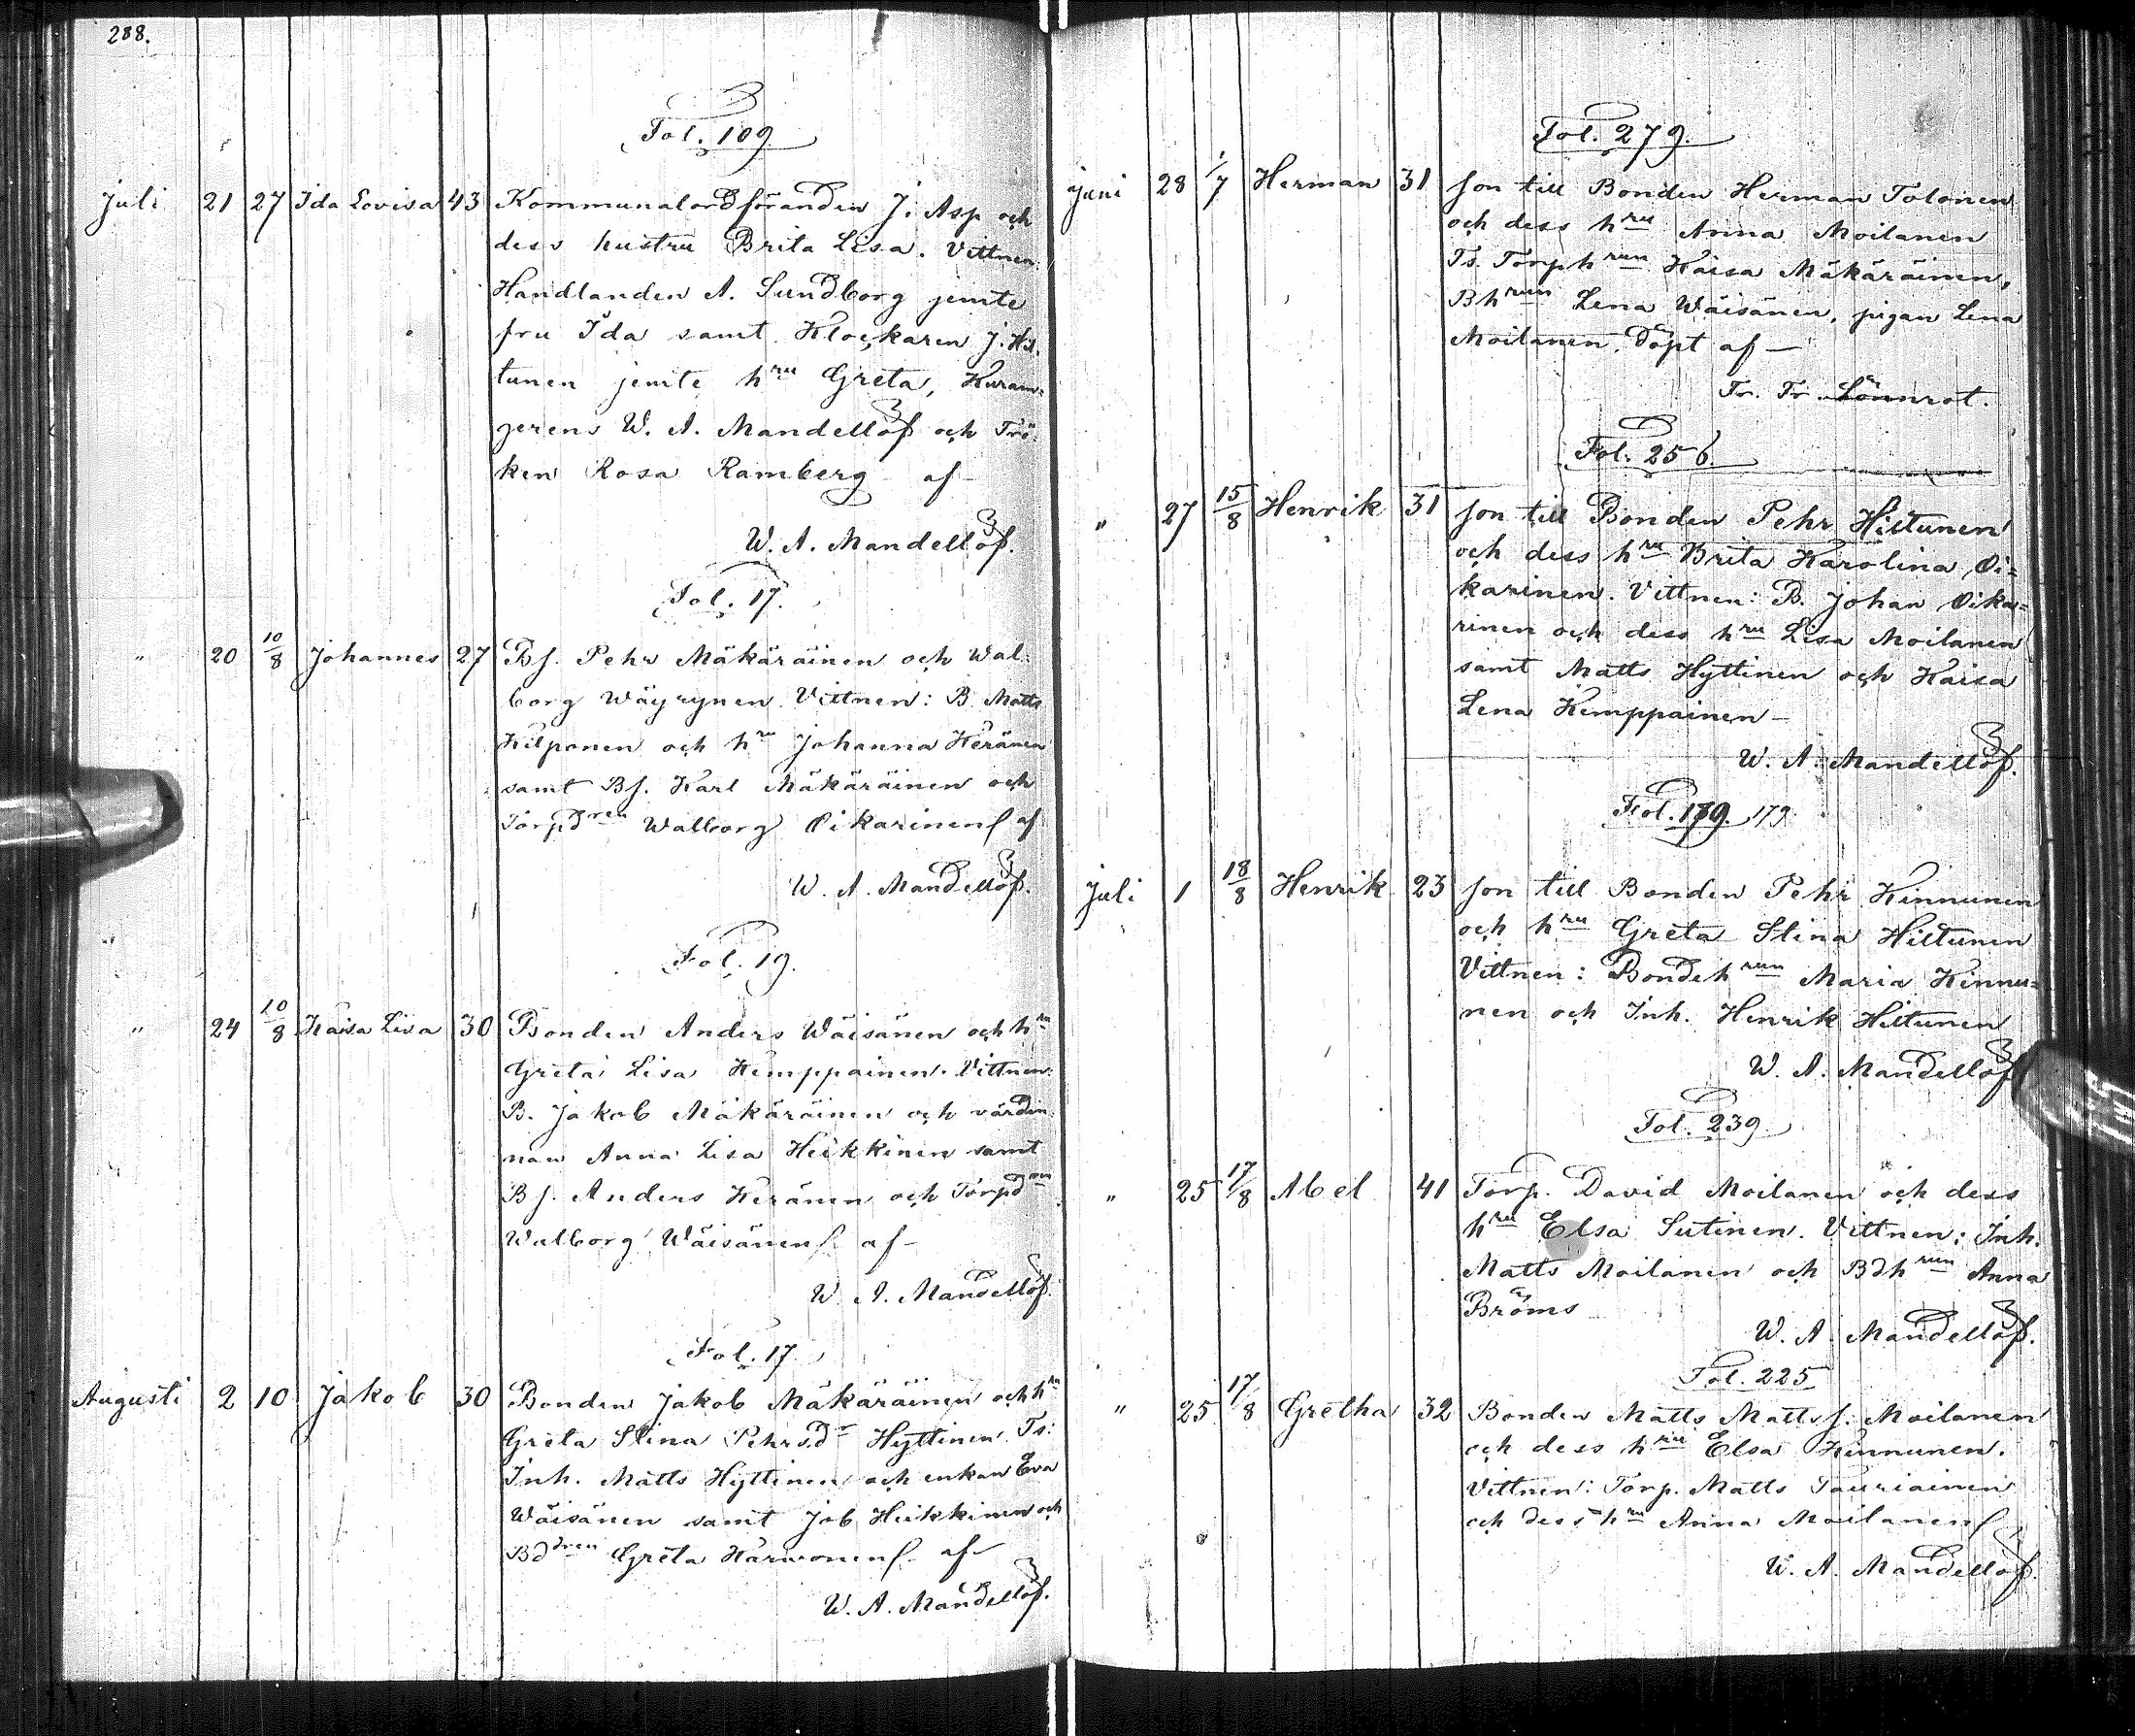 288.
Fol. 109.
Juli 21 27 Ida Lovisa 43 Kommunalordföranden J. Asp och
dess hustru Brita Lisa. Vittnen:
Handlanden A. Sundborg jemte
fru Ida samt Klockaren J. Hil-
tunen jemte hru Greta,
gerens W. A. Mandellöf och Frö-
ken Rosa Ramberg af
W. A. Mandellöf.
Fol. 17.
" 20 10/8 Johannes 27 Bs. Pehr Mäkäräinen och Wal-
borg Wäyrynen. Vittnen: B. Matts
Kilponen och hru Johanna Keränen
samt Bs. Karl Mäkäräinen och
Torpdren Walborg Oikarinen af
W. A. Mandellöf.
Fol. 19.
" 24 10/8 Kaisa Lisa 30 Bonden Anders Wäisänen och hru
Greta Lisa Kemppainen. Vittnen:
B. Jakob Mäkäräinen och värdin-
nan Anna Lisa Heikkinen samt
Bs. Anders Keränen och Torpd
Walborg Wäisänen af –
W. A. Mandellöf.
Fol. 17.
Augusti 2 10 Jakob 30 Bonden Jakob Mäkäräinen och hru
Greta Stina Pehrsdr Hyttinen. Ts:
Inh. Matts Hyttinen och enkan Eva
Wäisänen samt Job Heikkinen och
Bddren Greta Karvonen af
W. A. Mandellöf.
Fol. 279.
Juni 28 1/7 Herman 31 Son till Bonden Herman Tolonen
och dess hru Anna Moilanen
Ts. Torphrun Kaisa Mäkäräinen,
Bhrun Lena Wäisänen, pigan Lena
Moilanen. Döpt af —
Fr. Fr. Lönnrot.
Fol. 256.
" 27 15/8 Henrik 31 Son till Bonden Pehr Hiltunen
och dess hru Brita Karolina Oi=
karinen. Vittnen: B. Johan Oika=
rinen och dess hru Lisa Moilanen
samt Matts Hyttinen och Kaisa
Lena Kemppainen –
W. A. Mandellöf.
Fol. 179. 179.
Juli 1 18/8 Henrik 23 Son till Bonden Pehr Kinnunen
och hru Greta Stina Hiltunen
Vittnen: Bondehrun Maria Kinnu=
nen och Inh. Henrik Hiltunen
W. A. Mandellöf
Fol. 239.
" 25 17/8 Abel 41 Torp. David Moilanen och dess
hru Elsa Sutinen. Vittnen: Inh.
Matts Moilanen och Bdhrun Anna
Bröms
W. A. Mandellöf.
Fol. 225
" 25 17/8 Gretha 32 Bonden Matts Mattss. Moilanen
och dess hru Elsa Kinnunen.
Vittnen: Torp. Matts Tauriainen
och dess hru Anna Moilanen
W. A. Mandellöf.